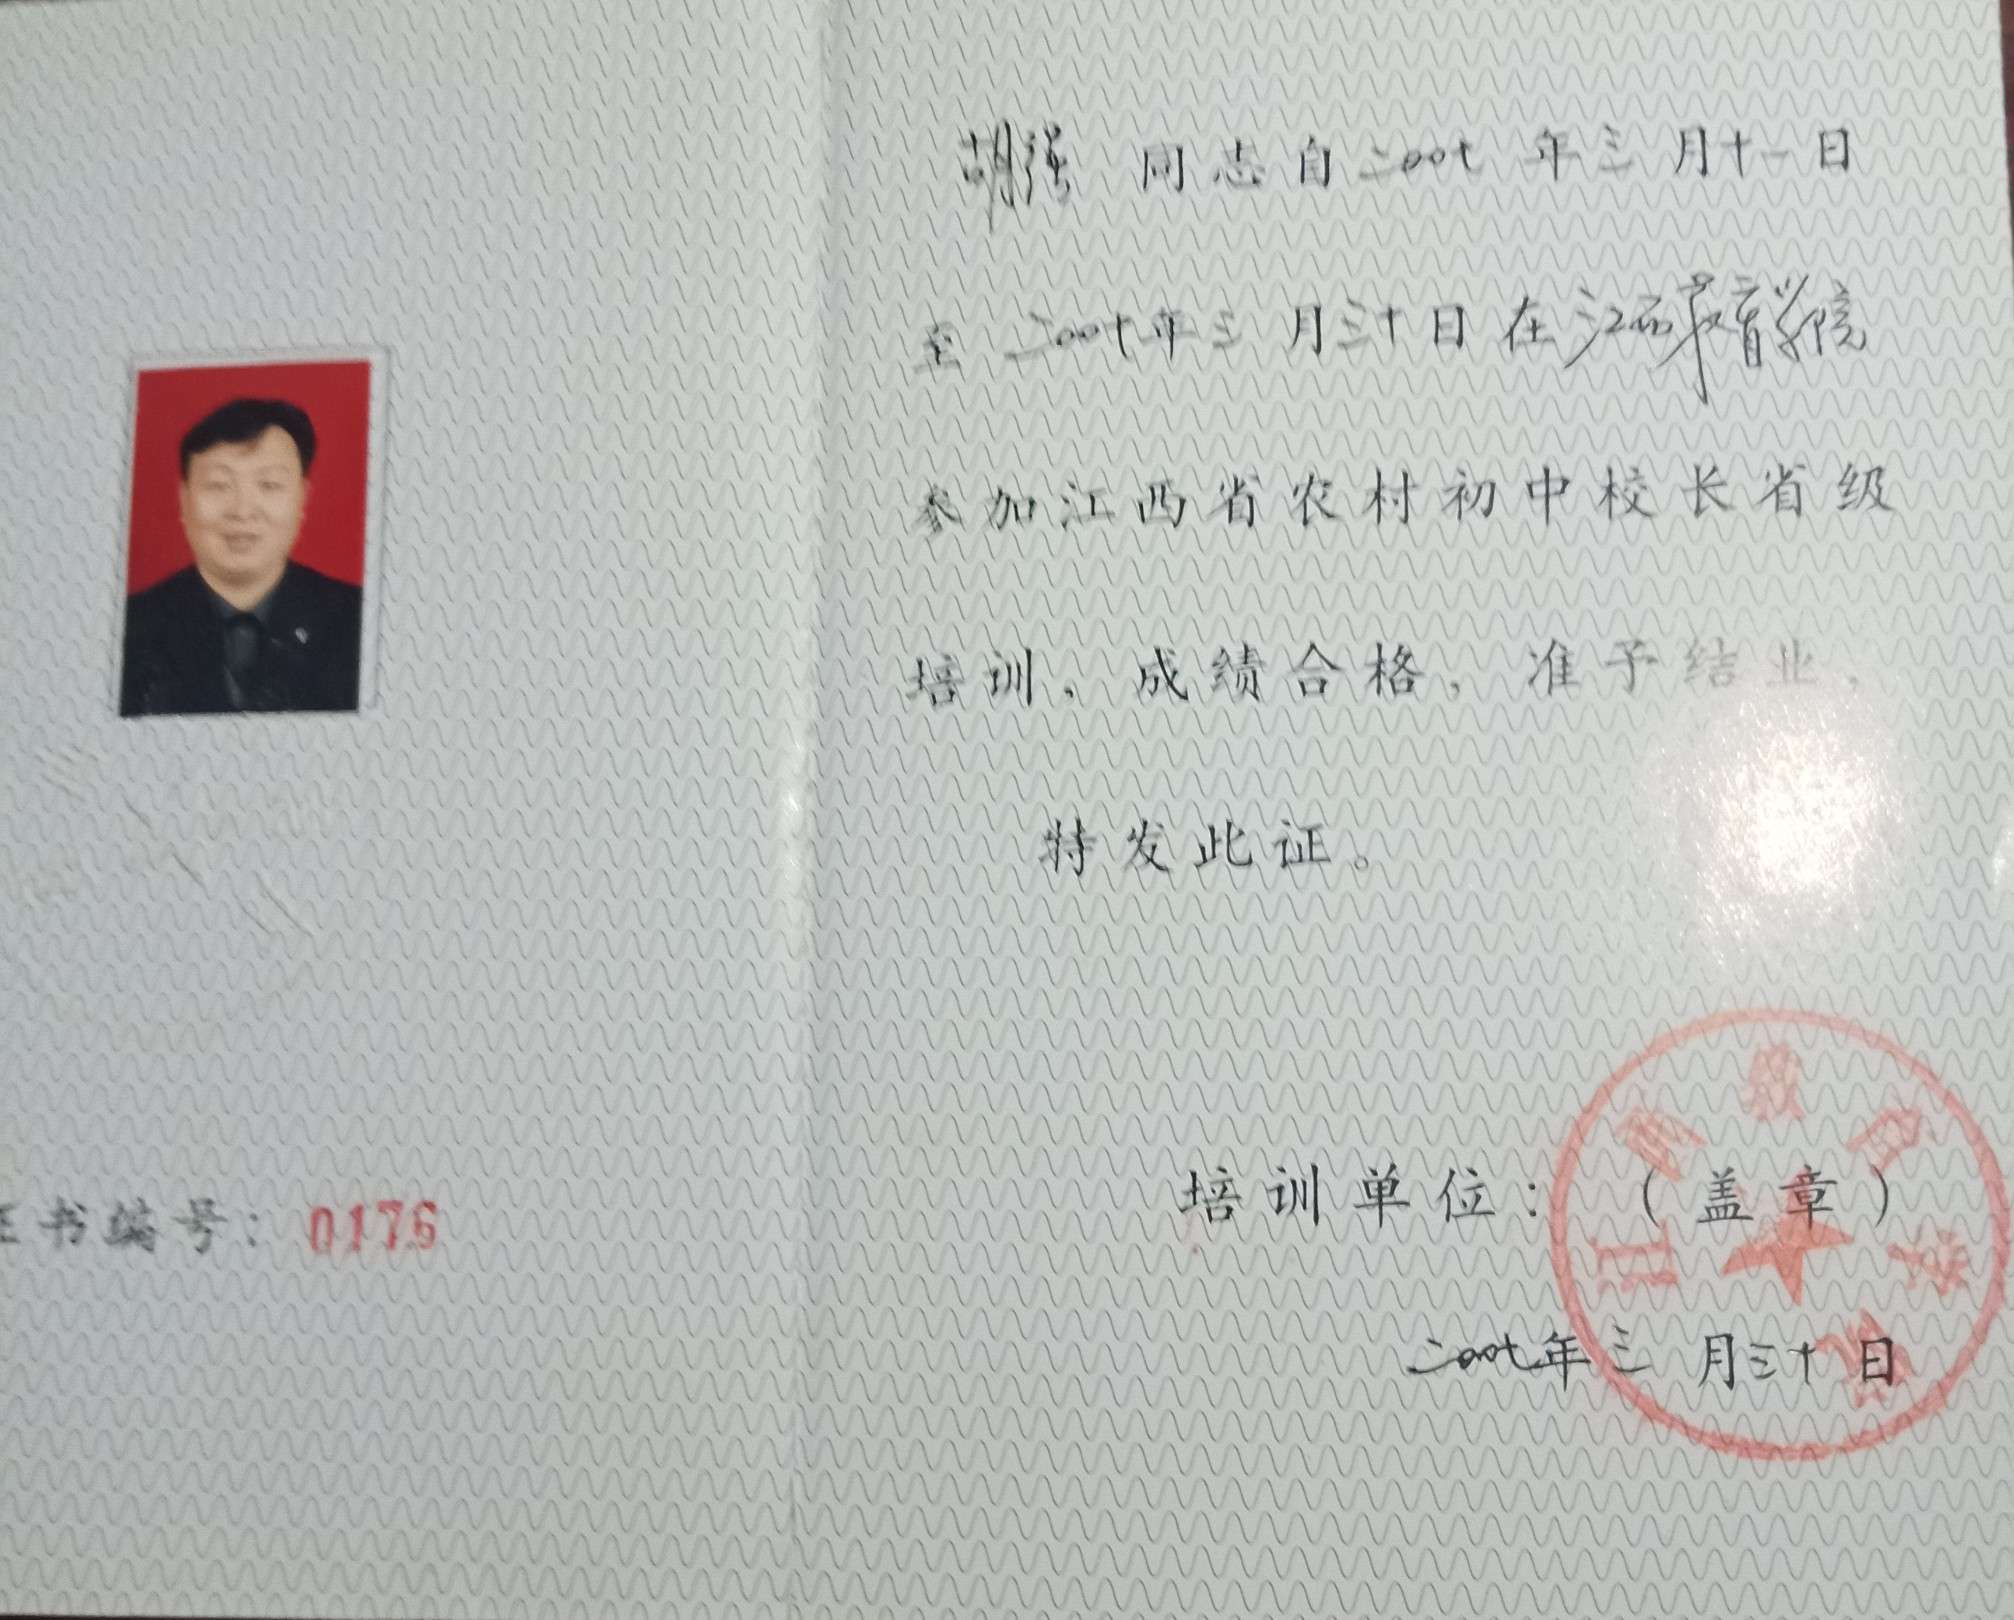 胡强 同志自二00七 年三 月十一日
至 二00七年三 月三十日 在江西教育学院
参加江西省农村初中校长省级
培训、成绩合格，准予结业，
特发此证。
培训单位：（盖章）
二00七年三 月三十日
江西教育学院
证书编号：0176